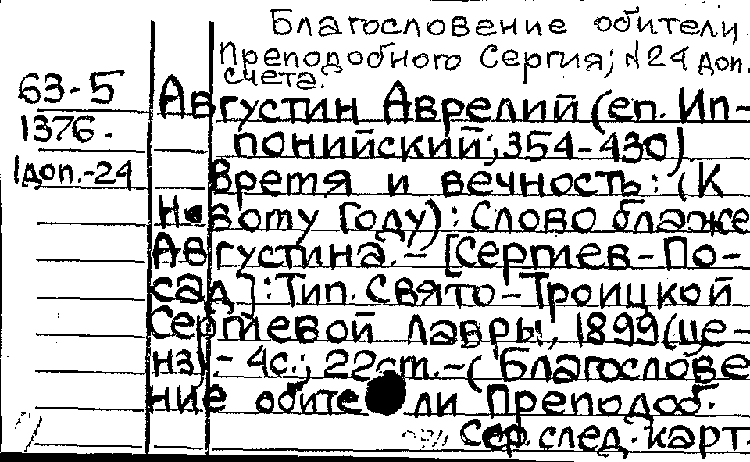 Благословение обители
Преподобного Сергия; №24 доп.
счета.
63-5
1376.
1доп.-24
Августин Аврелий (еп. Ип-
понийский; 354-430).
Время и вечность: (К
Новому Году): Слово блаже
Августина. - [Сергиев-По-
сад]: Тип. Свято-Троицкой
Сергиевой Лавры, 1899 (це-
нз). - 4с.; 22см. - (Благослове
ние обители Преподоб.
Сер. след. карт.